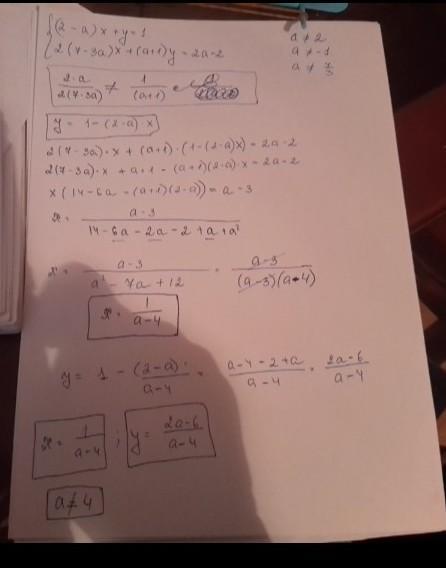 {(2-a)x+y=1
2(7-3a)x+(a+1)y=2a-2
a≠2
a≠-1
a≠7/3
(2-a)/(2(7-3a)) ≠ 1/(a+1)
y = 1-(2-a)·x
2(7-3a)·x + (a+1)·(1-(2-a)x)=2a-2
2(7-3a)·x + a+1 - (a+1)(2-a)·x=2a-2
x(14-6a-(a+1)(2-a))=a-3
x = (a-3)/(14-6a-2a-2+a+a²)
x = (a-3)/(a²-7a+12) = (a-3)/((a-3)(a-4))
x = 1/(a-4)
y = 1 - (2-a)/(a-4) = (a-4-2+a)/(a-4) = (2a-6)/(a-4)
x = 1/(a-4) ; y = (2a-6)/(a-4)
a≠4